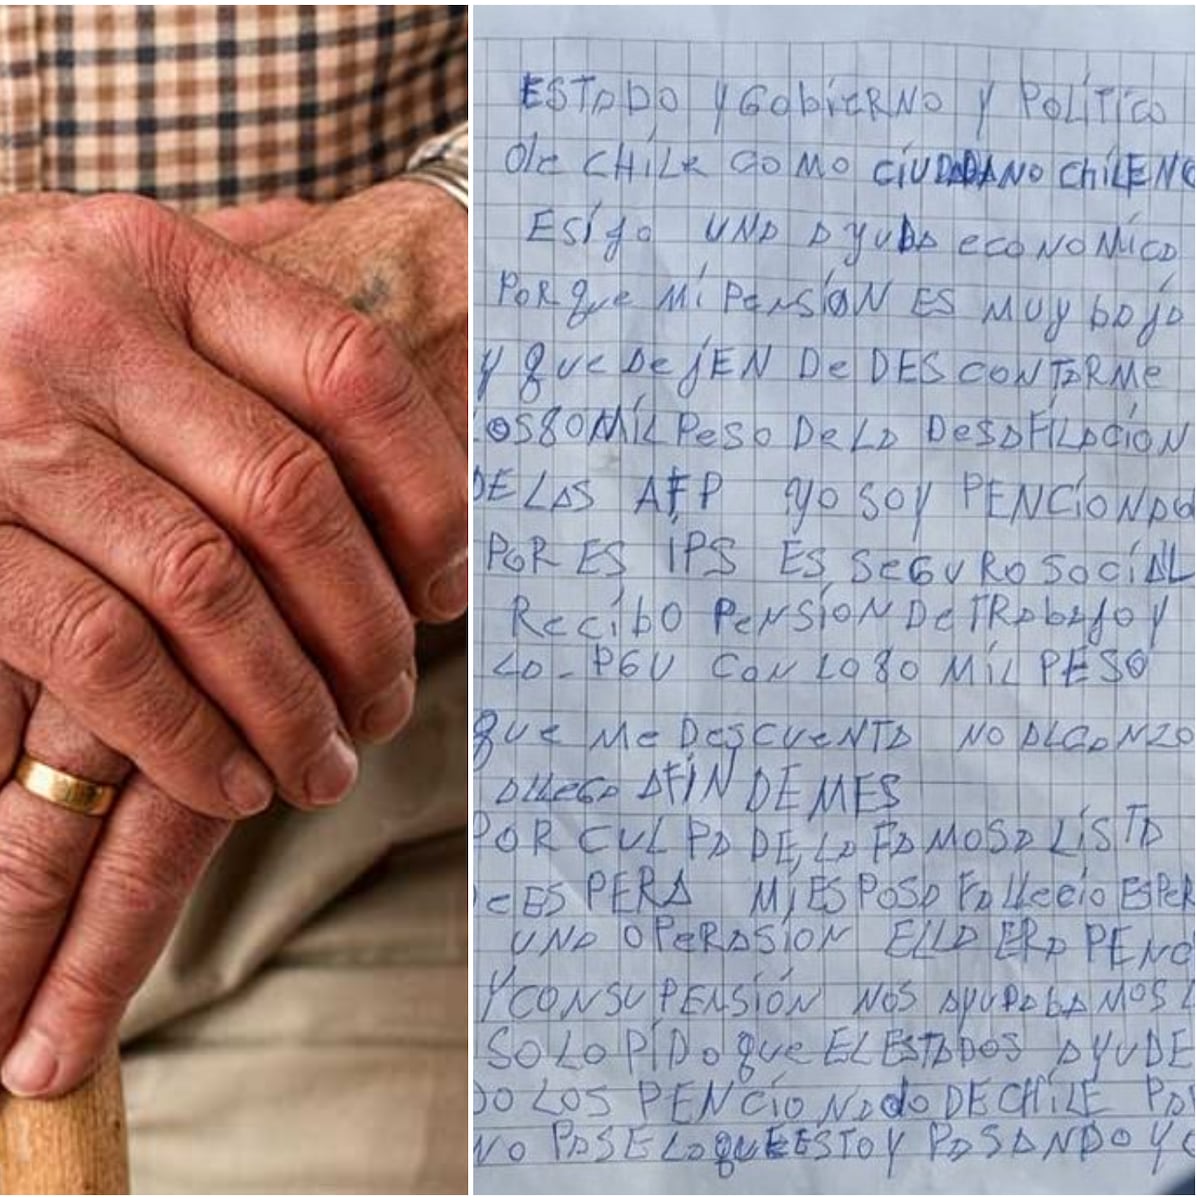 ESTADO y GObiERNO y POLíTíCO
De CHíLe COMO CíUDADANO ChíLENO
ESíjo UNA AyUDA ecoNOMíCA
PORque Mí PeNSíÓN ES MUy bAjA
y que DejEN De DESCONTARMe
LOS 80 MíL PeSO De LA DeSAFíLACíÓN
DE LAS AFP yo SOY PENCíONADO
POR ES íPS ES SeGURO SOCíAL
RecíbO PeNSíON De TRAbAjO Y
LA - PGU CON LO 80 MíL PESO
que Me DeSCUeNTA NO ALCANZO
A LLeGA A FíN DE MES
POR CULPA DE LA FAMOSA LíSTA
De ESPERA Mí ESPOSA FALLecío ESPER
UNA OPeRASíON ELLA ERA PENC
Y CON SU PENSíÓN NOS AyUDAbAMOS L
SOLO PíDO que EL ESTADOS AyUDE
DO LOS PENCíONAdO DE CHíLE PA
NO PASE LO qUE ESTOY PASANDO YO